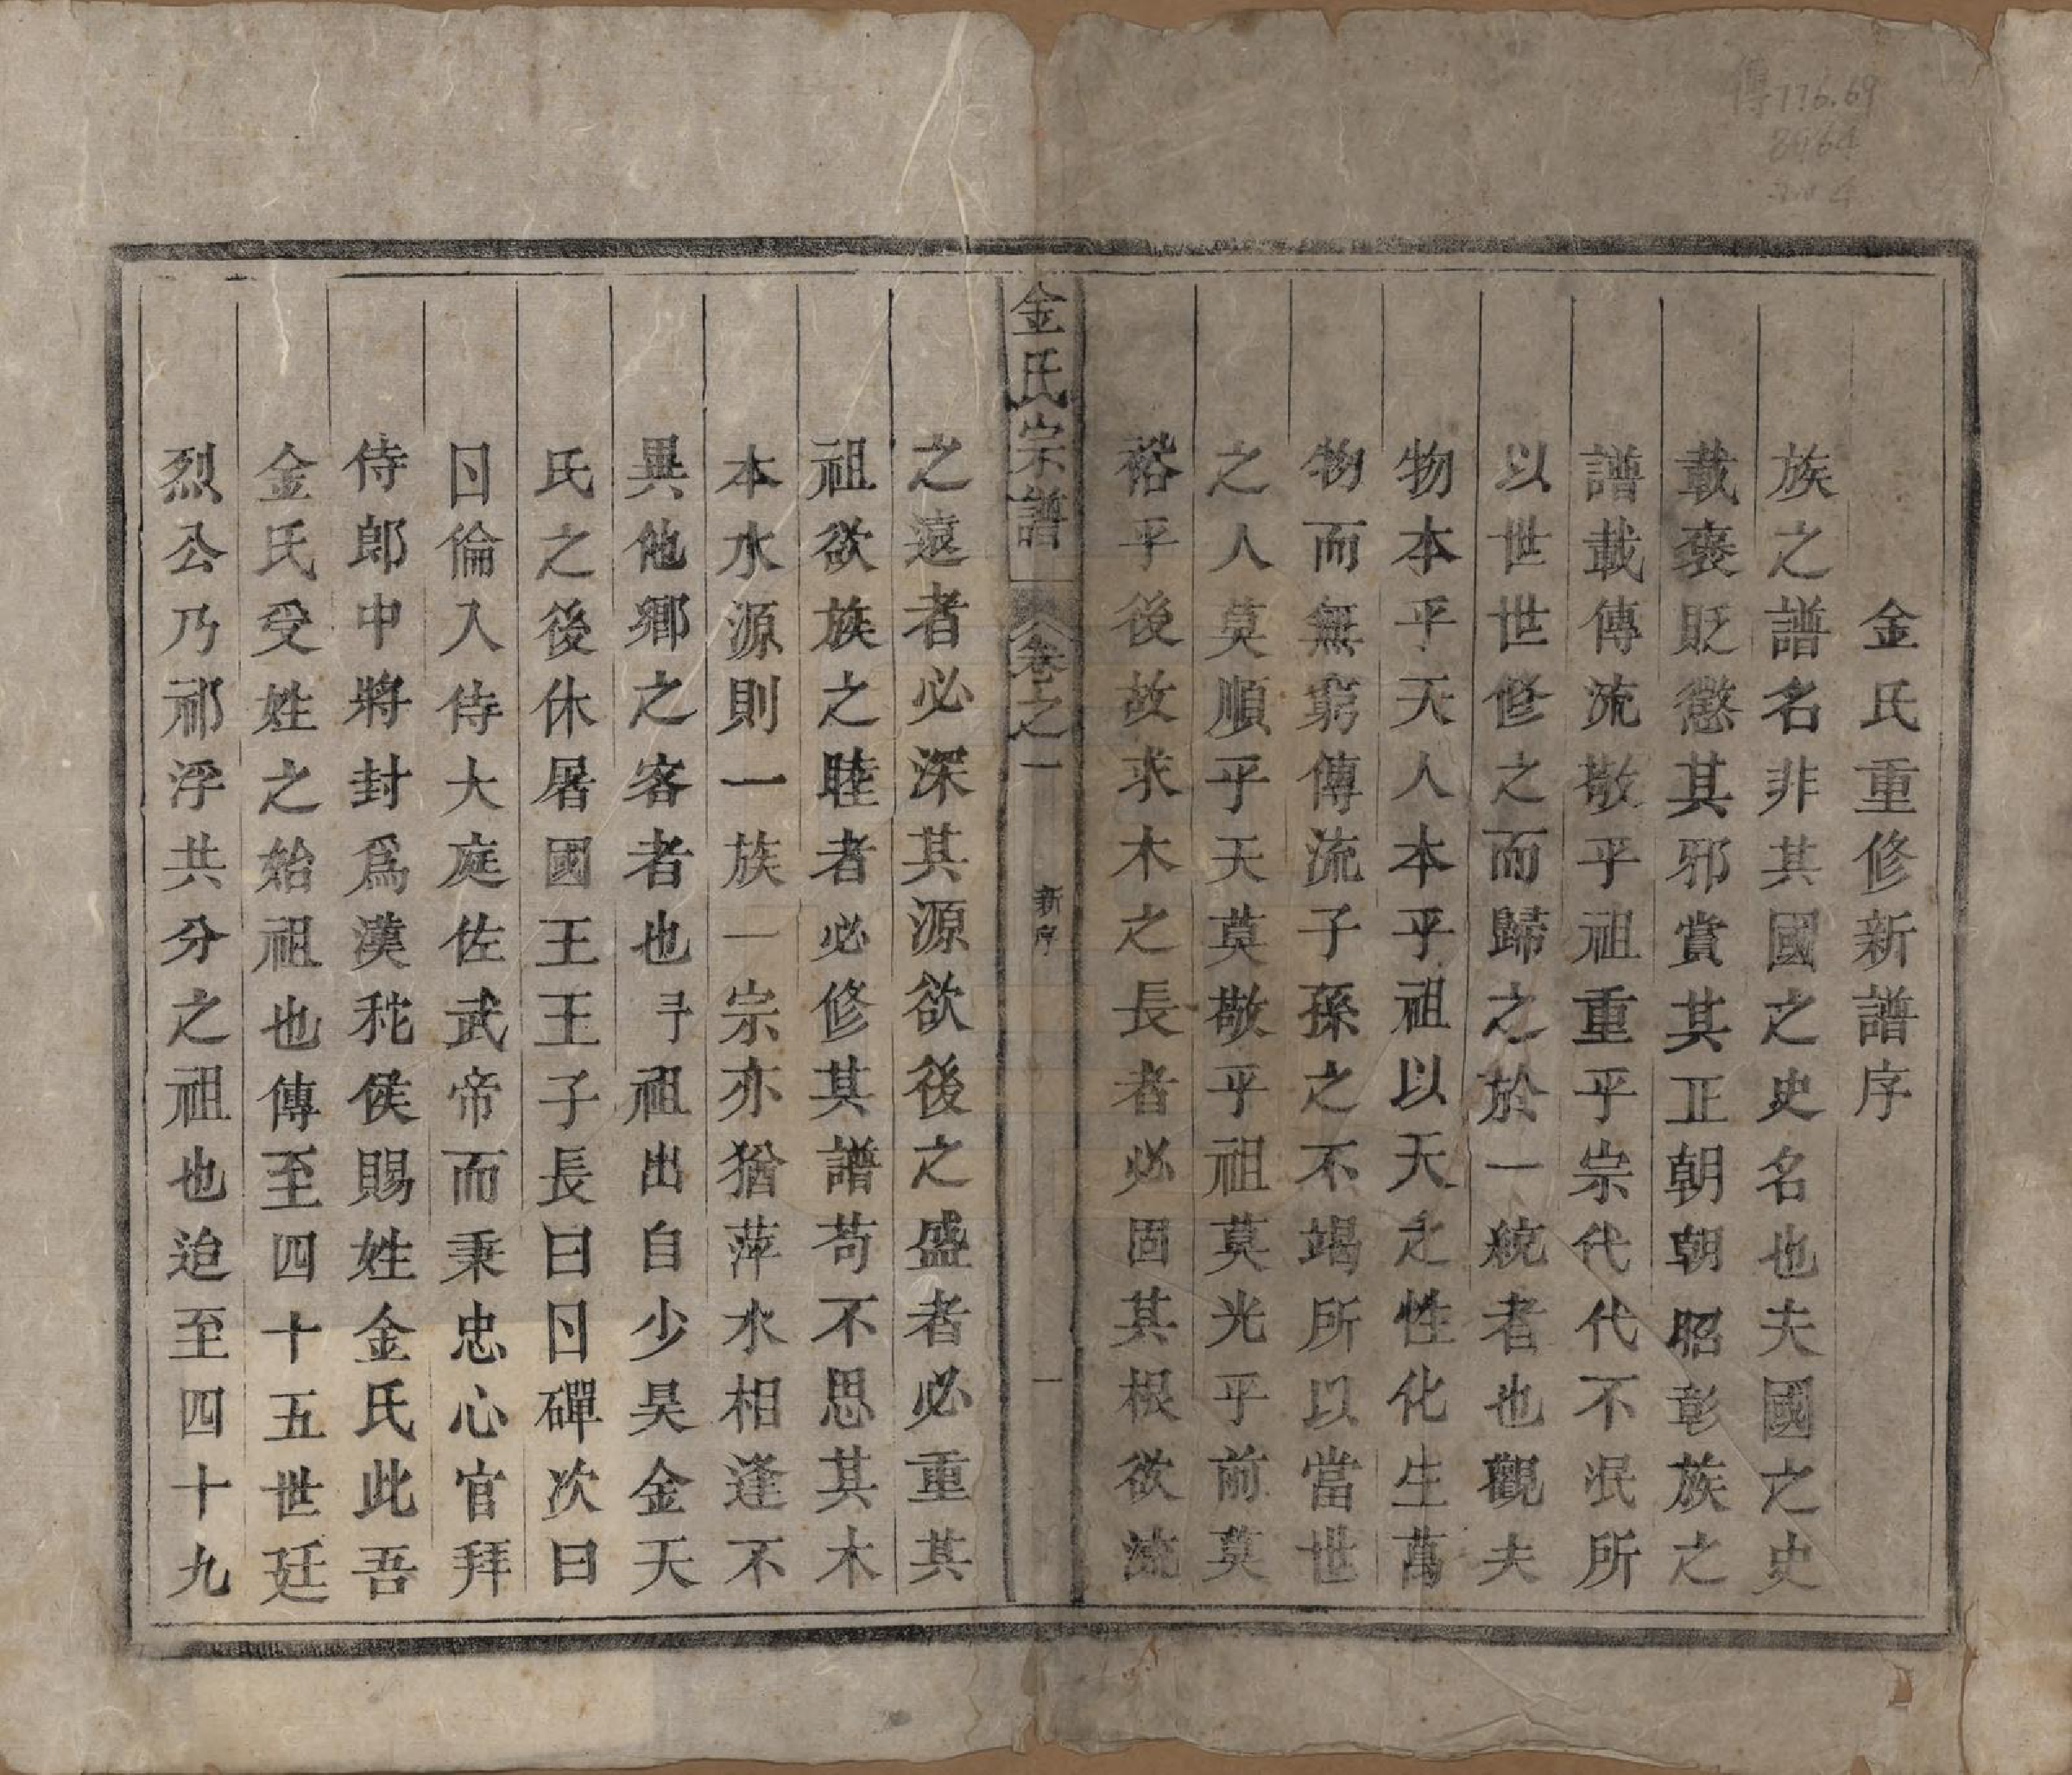 金氏重修新譜序
族之譜名非其國之史名也夫國之史
載褒貶懲其邪賞其正朝朝昭彰族之
譜載傳流敬乎祖重乎宗代代不泯所
以世世修之而歸之於一統者也觀夫
物本乎天人本乎祖以天之性化生萬
物而無窮傳流子孫之不竭所以當世
之人莫順乎天莫敬乎祖莫光乎前莫
裕乎後故求木之長者必固其根欲流
金氏宗譜
卷之一
新序
一
之遠者必深其源欲後之盛者必重其
祖欲族之睦者必修其譜苟不思其木
本水源則一族一宗亦猶萍水相逢不
異他鄉之客者也予祖出自少昊金天
氏之後休屠國王王子長曰日磾次曰
日倫入侍大庭佐武帝而秉忠心官拜
侍郎中將封爲漢秺侯賜姓金氏此吾
金氏受姓之始祖也傳至四十五世廷
烈公乃祁浮共分之祖也迨至四十九
傳776.69
8064